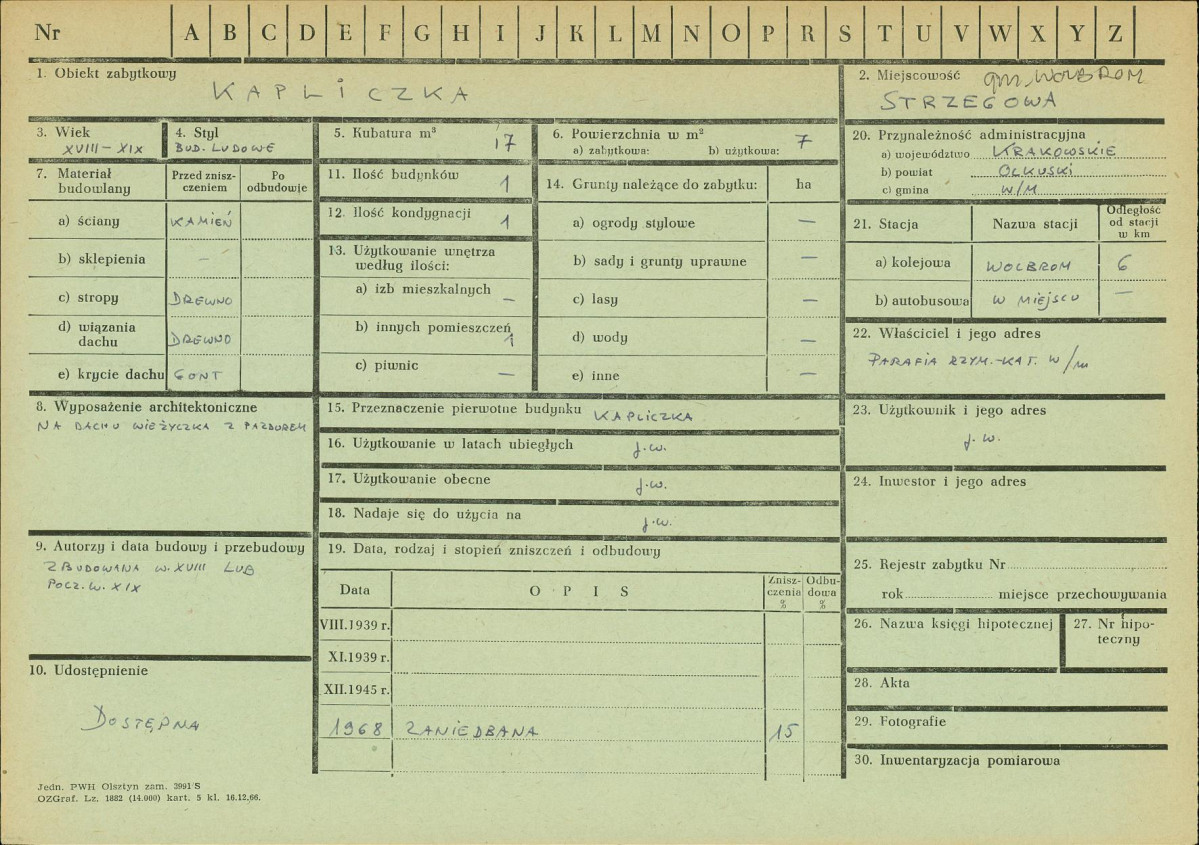 Nr A B C D E F G H I J K L M N O P R S T U V W X Y Z
1. Obiekt zabytkowy
KAPLICZKA
2. Miejscowość gm. WOLBROM
STRZEGOWA
3. Wiek
XVIII – XIX
4. Styl
BUD. LUDOWE
5. Kubatura m³ 17
6. Powierzchnia w m² 7
a) zabytkowa: b) użytkowa:
7. Materiał budowlany
Przed zniszczeniem
Po odbudowie
a) ściany KAMIEŃ
b) sklepienia –
c) stropy DREWNO
d) wiązania dachu DREWNO
e) krycie dachu GONT
8. Wyposażenie architektoniczne
NA DACHU WIEŻYCZKA Z PAZDUREM
9. Autorzy i data budowy i przebudowy
ZBUDOWANA W. XVIII LUB
POCZ. W. XIX
10. Udostępnienie
DOSTĘPNA
11. Ilość budynków 1
12. Ilość kondygnacji 1
13. Użytkowanie wnętrza
według ilości:
a) izb mieszkalnych –
b) innych pomieszczeń 1
c) piwnic –
14. Grunty należące do zabytku: ha
a) ogrody stylowe –
b) sady i grunty uprawne –
c) lasy –
d) wody –
e) inne –
15. Przeznaczenie pierwotne budynku KAPLICZKA
16. Użytkowanie w latach ubiegłych j.w.
17. Użytkowanie obecne j.w.
18. Nadaje się do użycia na j.w.
19. Data, rodzaj i stopień zniszczeń i odbudowy
Data OPIS Zniszczenia % Odbudowa %
VIII.1939 r.
XI.1939 r.
XII.1945 r.
1968 ZANIEDBANA 15
20. Przynależność administracyjna
a) województwo KRAKOWSKIE
b) powiat OLKUSKI
c) gmina W/M
21. Stacja Nazwa stacji Odległość od stacji w km
a) kolejowa WOLBROM 6
b) autobusowa W MIEJSCU –
22. Właściciel i jego adres
PARAFIA RZYM.-KAT. W/m
23. Użytkownik i jego adres
j.w.
24. Inwestor i jego adres
25. Rejestr zabytku Nr
rok miejsce przechowywania
26. Nazwa księgi hipotecznej
27. Nr hipoteczny
28. Akta
29. Fotografie
30. Inwentaryzacja pomiarowa
Jedn. PWH Olsztyn zam. 3991 S
OZGraf. Lz. 1882 (14.000) kart. 5 kl. 16.12.66.